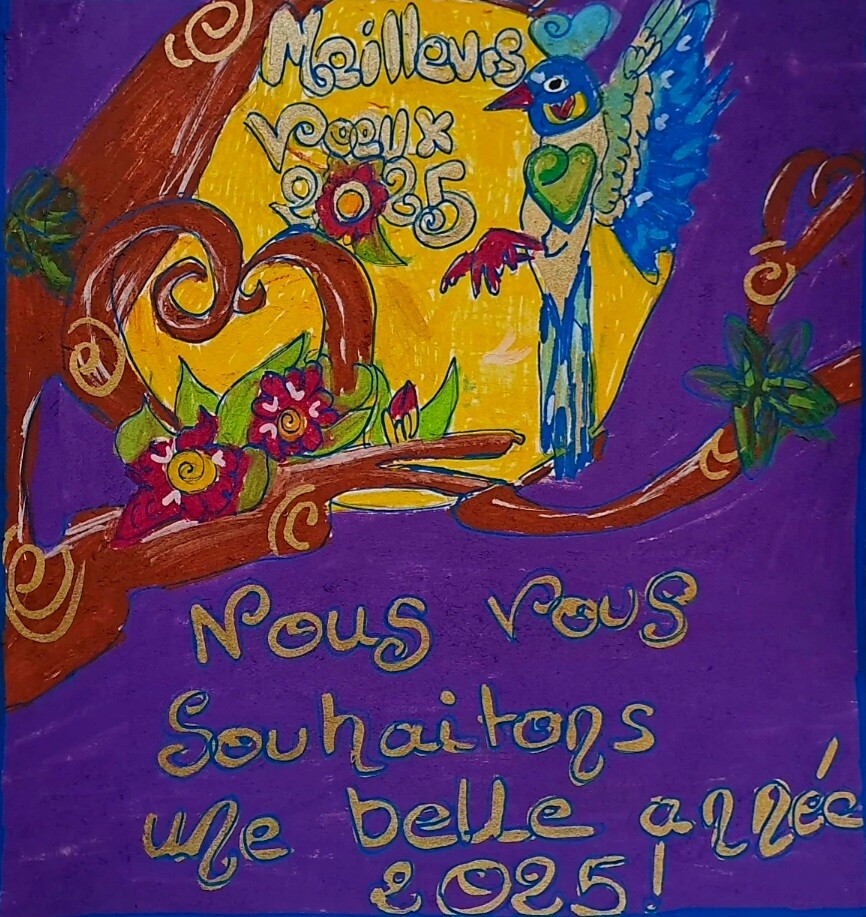 Meilleurs
voeux
2025
Nous vous
Souhaitons
une belle année
2025!